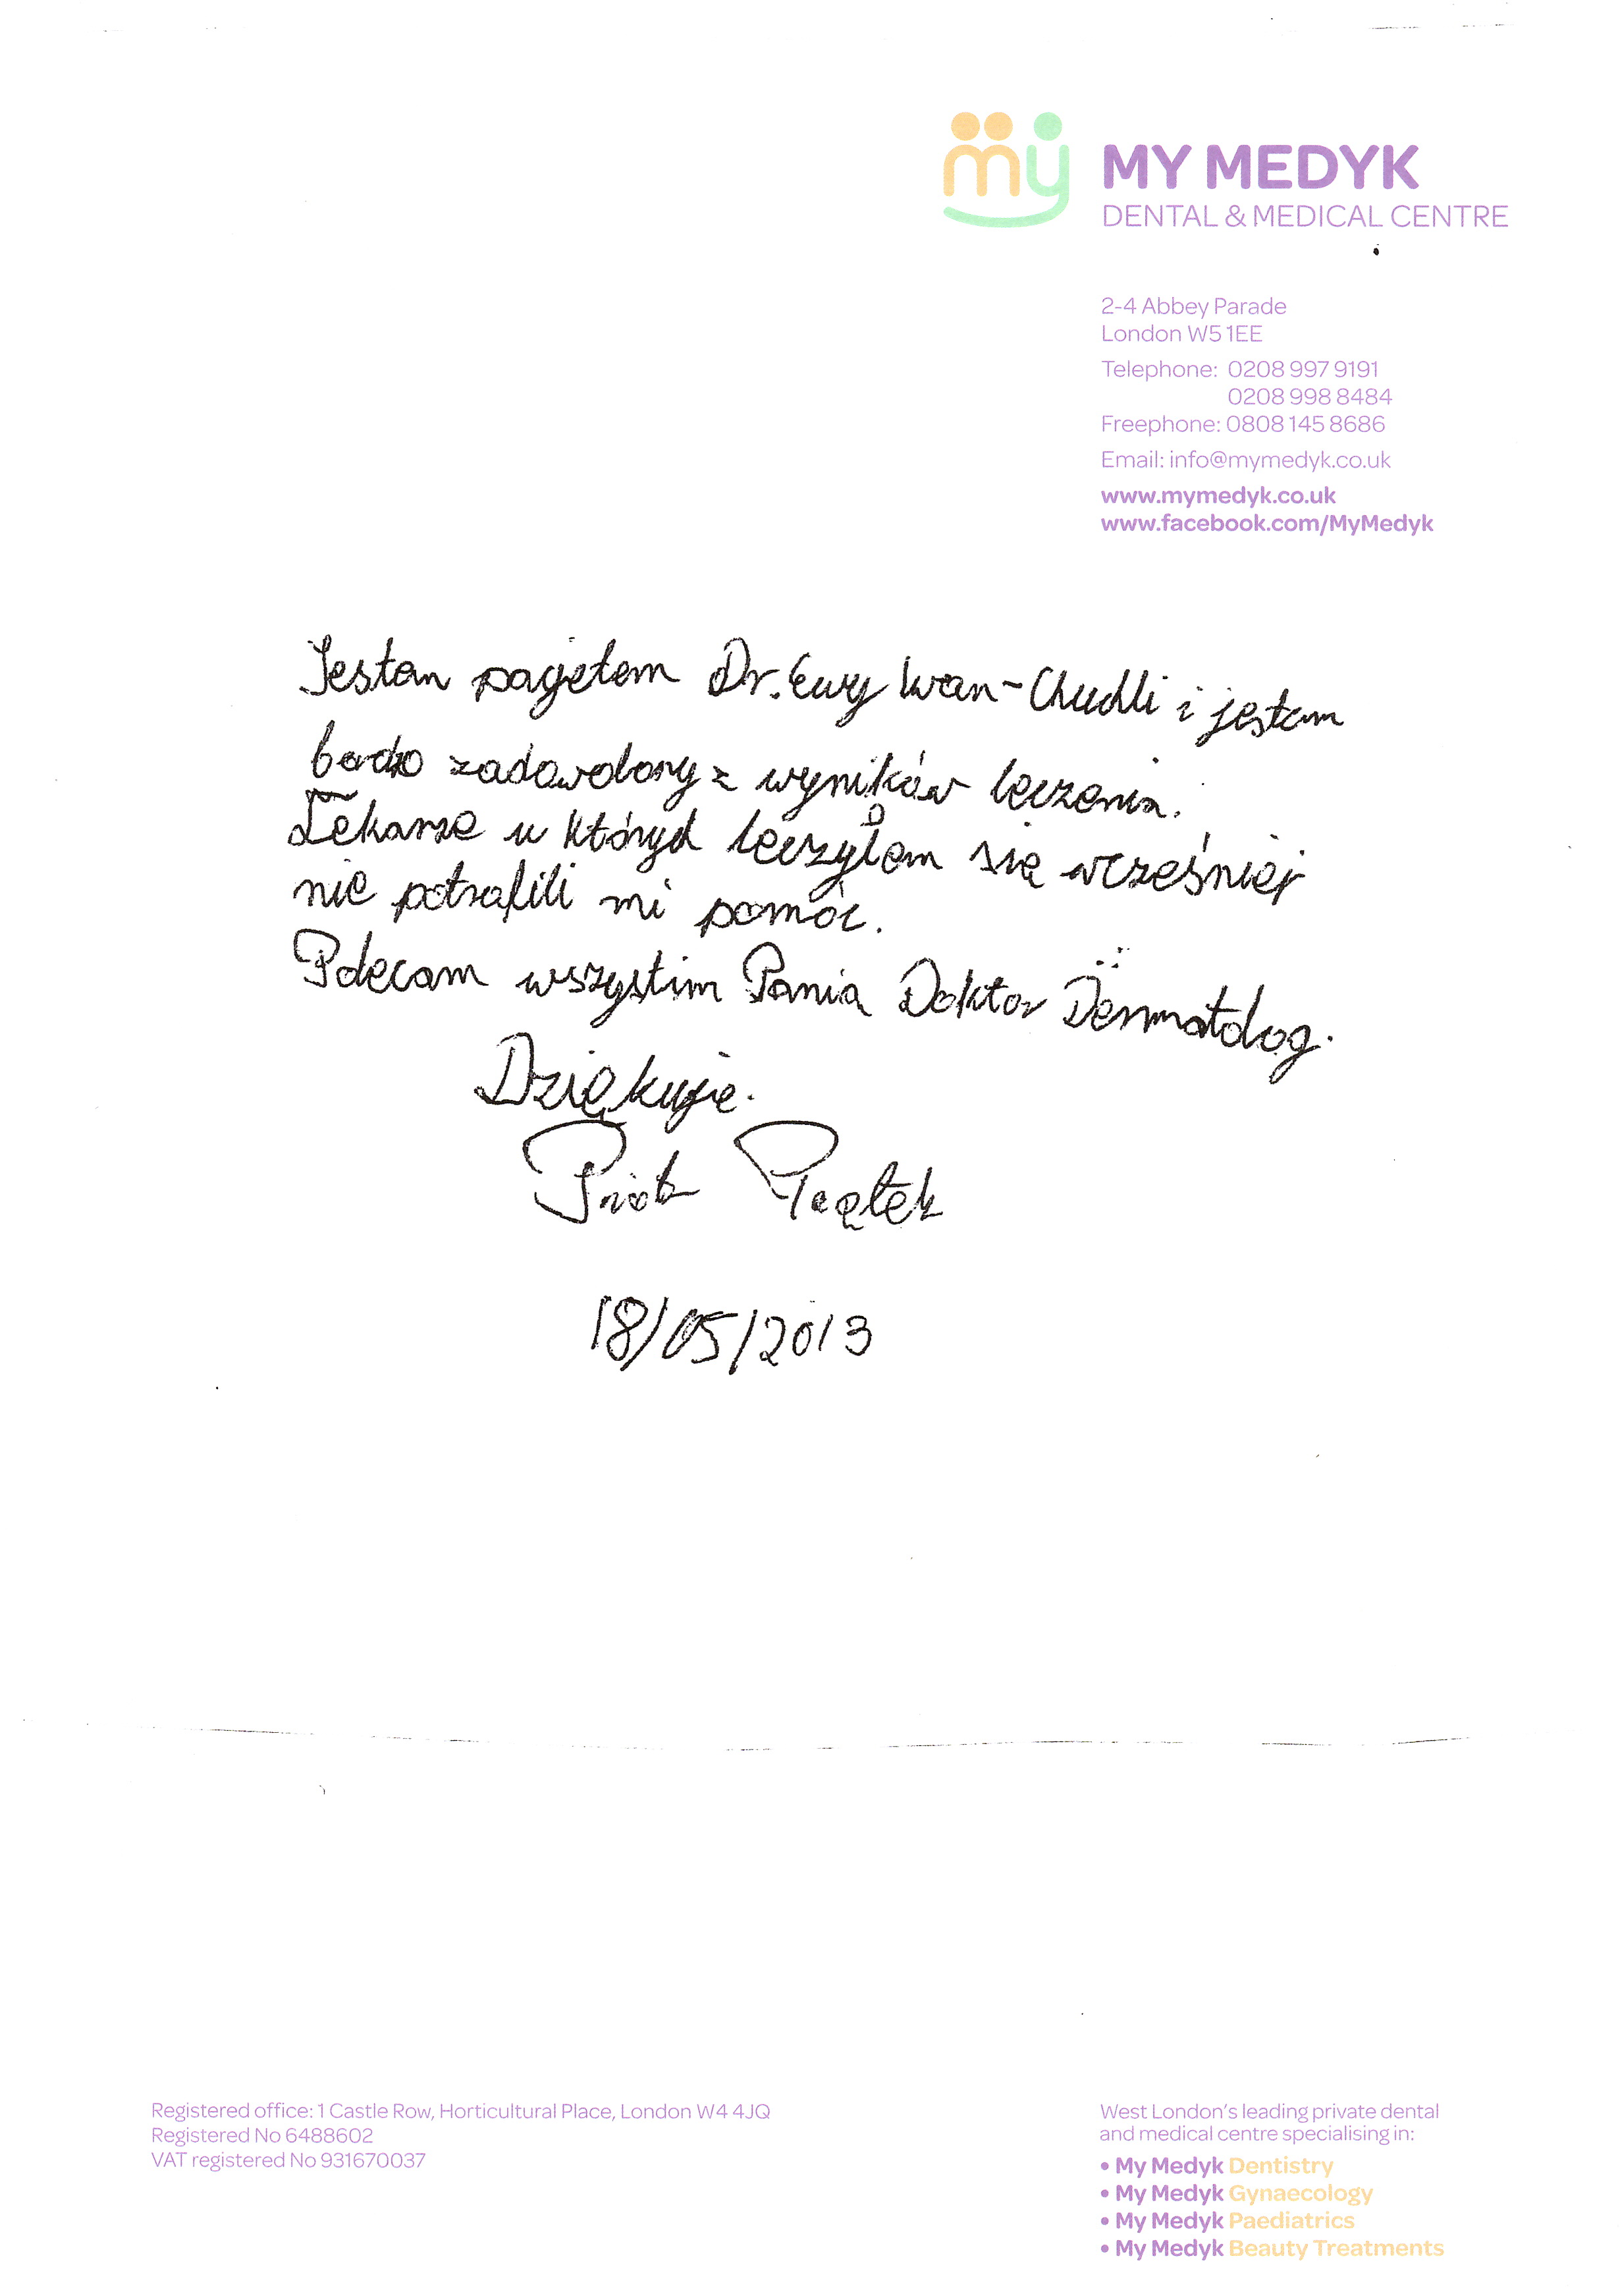 my MY MEDYK
DENTAL & MEDICAL CENTRE
2-4 Abbey Parade
London W5 1EE
Telephone: 0208 997 9191
0208 998 8484
Freephone: 0808 145 8686
Email: info@mymedyk.co.uk
www.mymedyk.co.uk
www.facebook.com/MyMedyk
Jestem pacjetem Dr. Ewy Iwan-Chuchli i jestem
bardzo zadowolony z wyników leczenia.
Lekarze u których leczyłem się wcześniej
nie potrafili mi pomóc.
Polecam wszystim Pania Doktor Dermatolog.
Dziękuje.
Piotr
18/05/2013
Registered office: 1 Castle Row, Horticultural Place, London W4 4JQ
Registered No 6488602
VAT registered No 931670037
West London's leading private dental
and medical centre specialising in:
• My Medyk Dentistry
• My Medyk Gynaecology
• My Medyk Paediatrics
• My Medyk Beauty Treatments